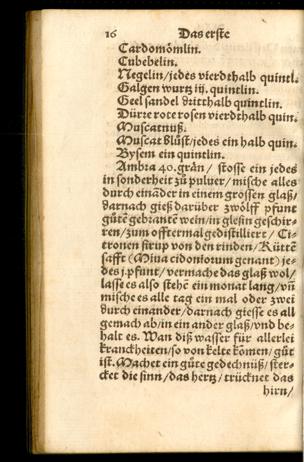 16 Das erste
Cardomömlin.
Cubebelin.
Negelin/jedes vierdthalb quintl.
Galgen wurtz iij. quintlin.
Geel sandel dritthalb quintlin.
Dürre rote rosen vierdthalb quin.
Muscatnuß.
Muscat blüst/jedes ein halb quin.
Bysem ein quintlin.
Ambra 40. grän / stosse ein jedes
in sonderheit zů puluer/mische alles
durch einãder in einem grossen glaß/
darnach gieß darüber zwölff pfunt
gůtẽ gebrantẽ wein/in glesin geschir-
ren/zum offtermal gedistilliert / Ci-
tronen sirup von den rinden/Küttẽ
safft (Miua cidoniorum genant) je-
des j.pfunt/vermache das glaß wol/
lasse es also stehẽ ein monat lang/vñ
mische es alle tag ein mal oder zwei
durch einander/darnach giesse es all
gemach ab/in ein ander glaß/vnd be-
halt es. Wan diß wasser für allerlei
kranckheiten/so von kelte kõmen/gůt
ist. Machet ein gůte gedechnüß/ster-
cket die sinn/das hertz/trücknet das
hirn/